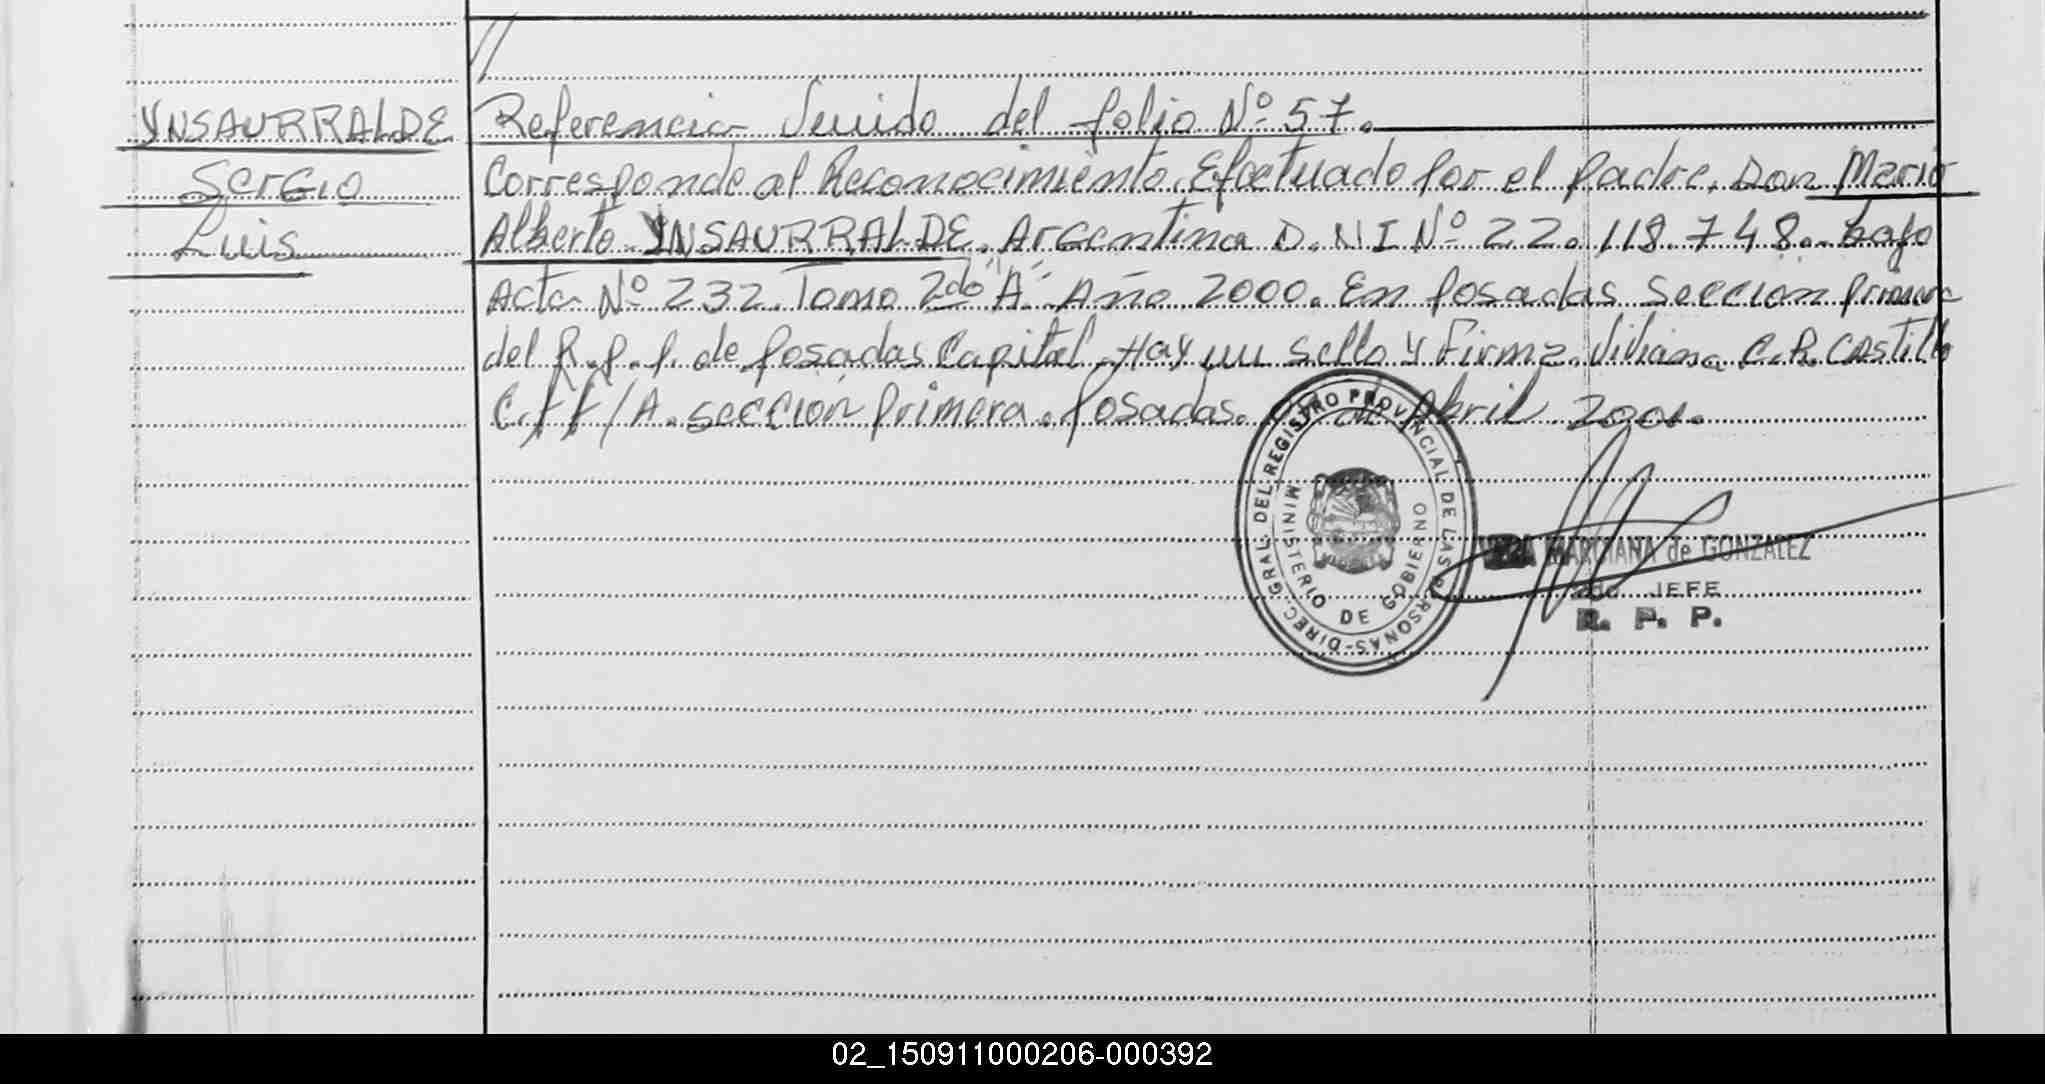 //
YNSAURRALDE Referencia Venido del folio Nº 57.
Sergio Corresponde al Reconocimiento. Efectuado por el padre. Don Mario
Luis Alberto YNSAURRALDE. Argentina D.NI Nº 22.118.748. bajo
Acta Nº 232. Tomo 2do "A" Año 2000. En posadas Sección primera
del R.p.p. de posadas Capital. Hay un sello y Firma. Viviana C.R. CAstillo
C.ff/A. sección primera. posadas. de Abril 2001.
DIREC. GRAL. DEL REGISTRO PROVINCIAL DE LAS PERSONAS
MINISTERIO DE GOBIERNO
MARCIANA de GONZALEZ
2do JEFE
R. P. P.
02_150911000206-000392